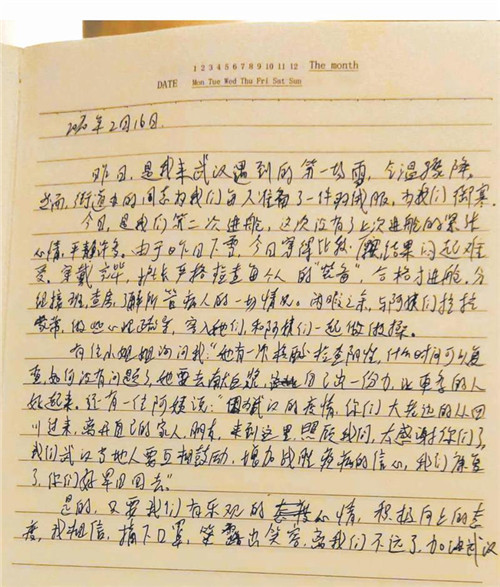 1 2 3 4 5 6 7 8 9 10 11 12 The month
DATE Mon Tue Wed Thu Fri Sat Sun
2020年2月16日.
昨日,是我来武汉遇到的第一场雪,气温骤降.
当雨,街道办的同志为我们每人准备了一件羽绒服,为我们御寒.
今日,是我们第二次进舱,这次没有了上次进舱的紧张
心情,平静许多。由于昨日下雪,今日穿得比较,结果闷起难
受。穿戴完毕,组长严格检查每个人的"装备",合格才进舱。分
组接班,查房,了解所管病人的一切情况。闲暇之余,与阿姨们拉拉
家常,做些心理疏导,深入她们,和阿姨们一起做做操。
有位小姐姐询问我:"她有一次核酸检查阴性,什么时间可以复
查,如何没有问题了,她要去献血浆,自己出一份力,让更多的人
好起来。还有一位阿姨说:"因为武汉的疫情,你们大老远的从四
川过来,离开自己的家人,朋友,来到这里照顾我们,太感谢你们了,
我们武汉当地人要互相鼓励,增加战胜疫病的信心,我们康复
了,你们好早日回去"
是的,只要我们有乐观的心情,积极向上的态
度,我相信,摘下口罩,露出笑容,离我们不远了,加油武汉